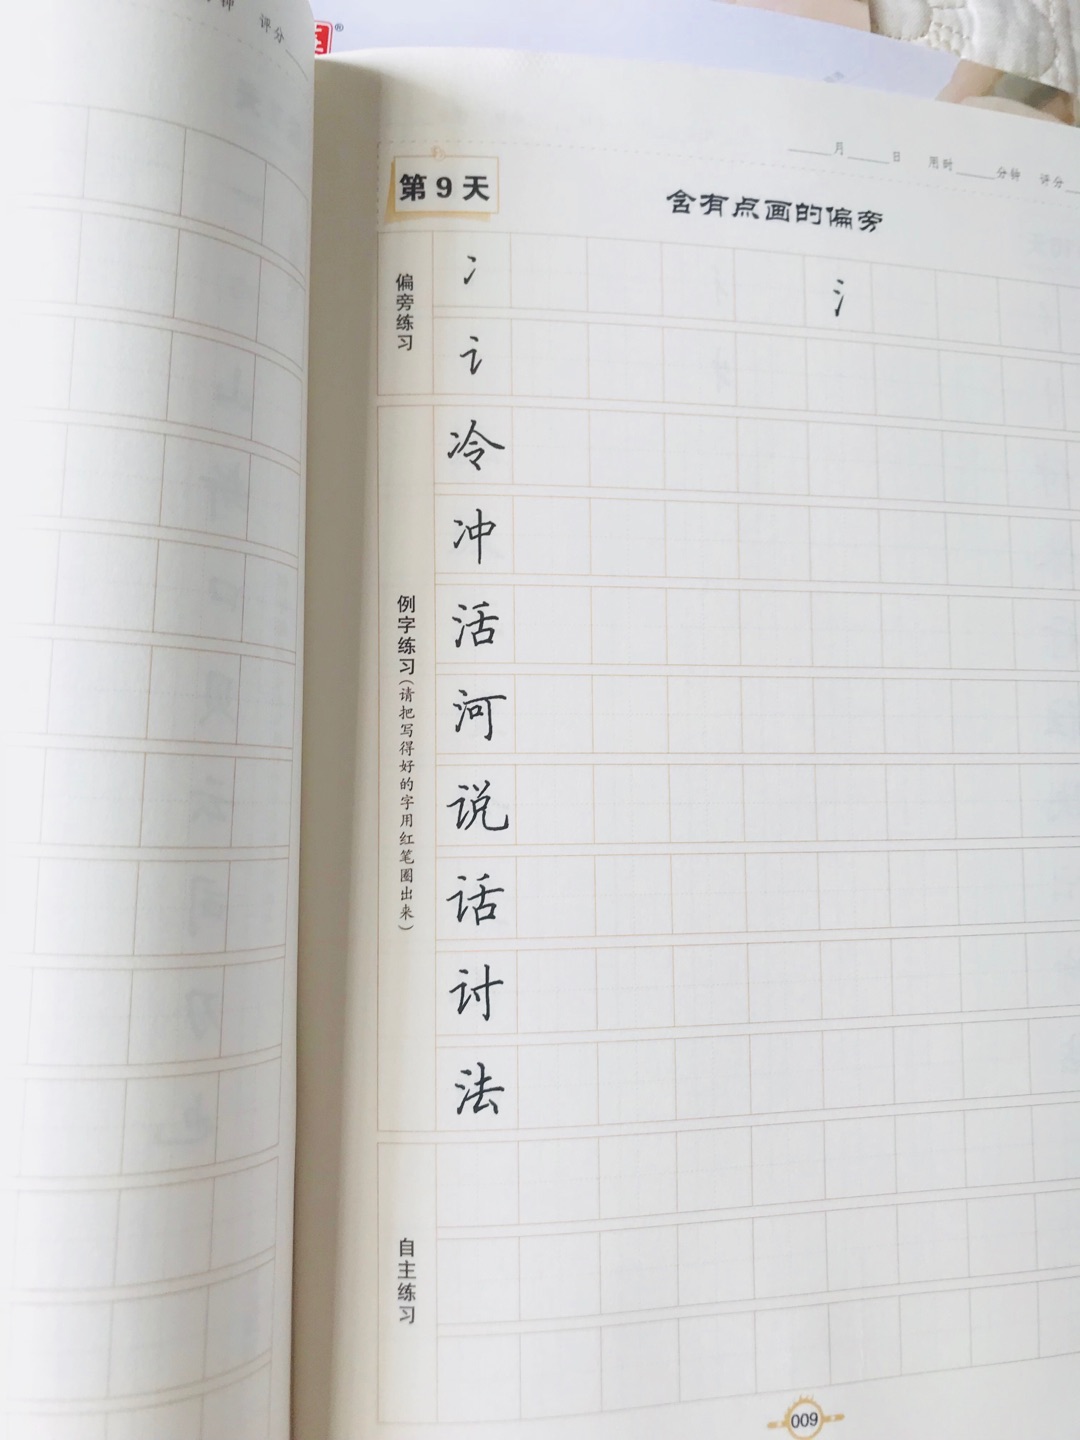 钟 评分
月 日 用时 分钟 评分
第9天
含有点画的偏旁
偏旁练习
冫 氵
讠
例字练习(请把写得好的字用红笔圈出来)
冷
冲
活
河
说
话
讨
法
自主练习
009